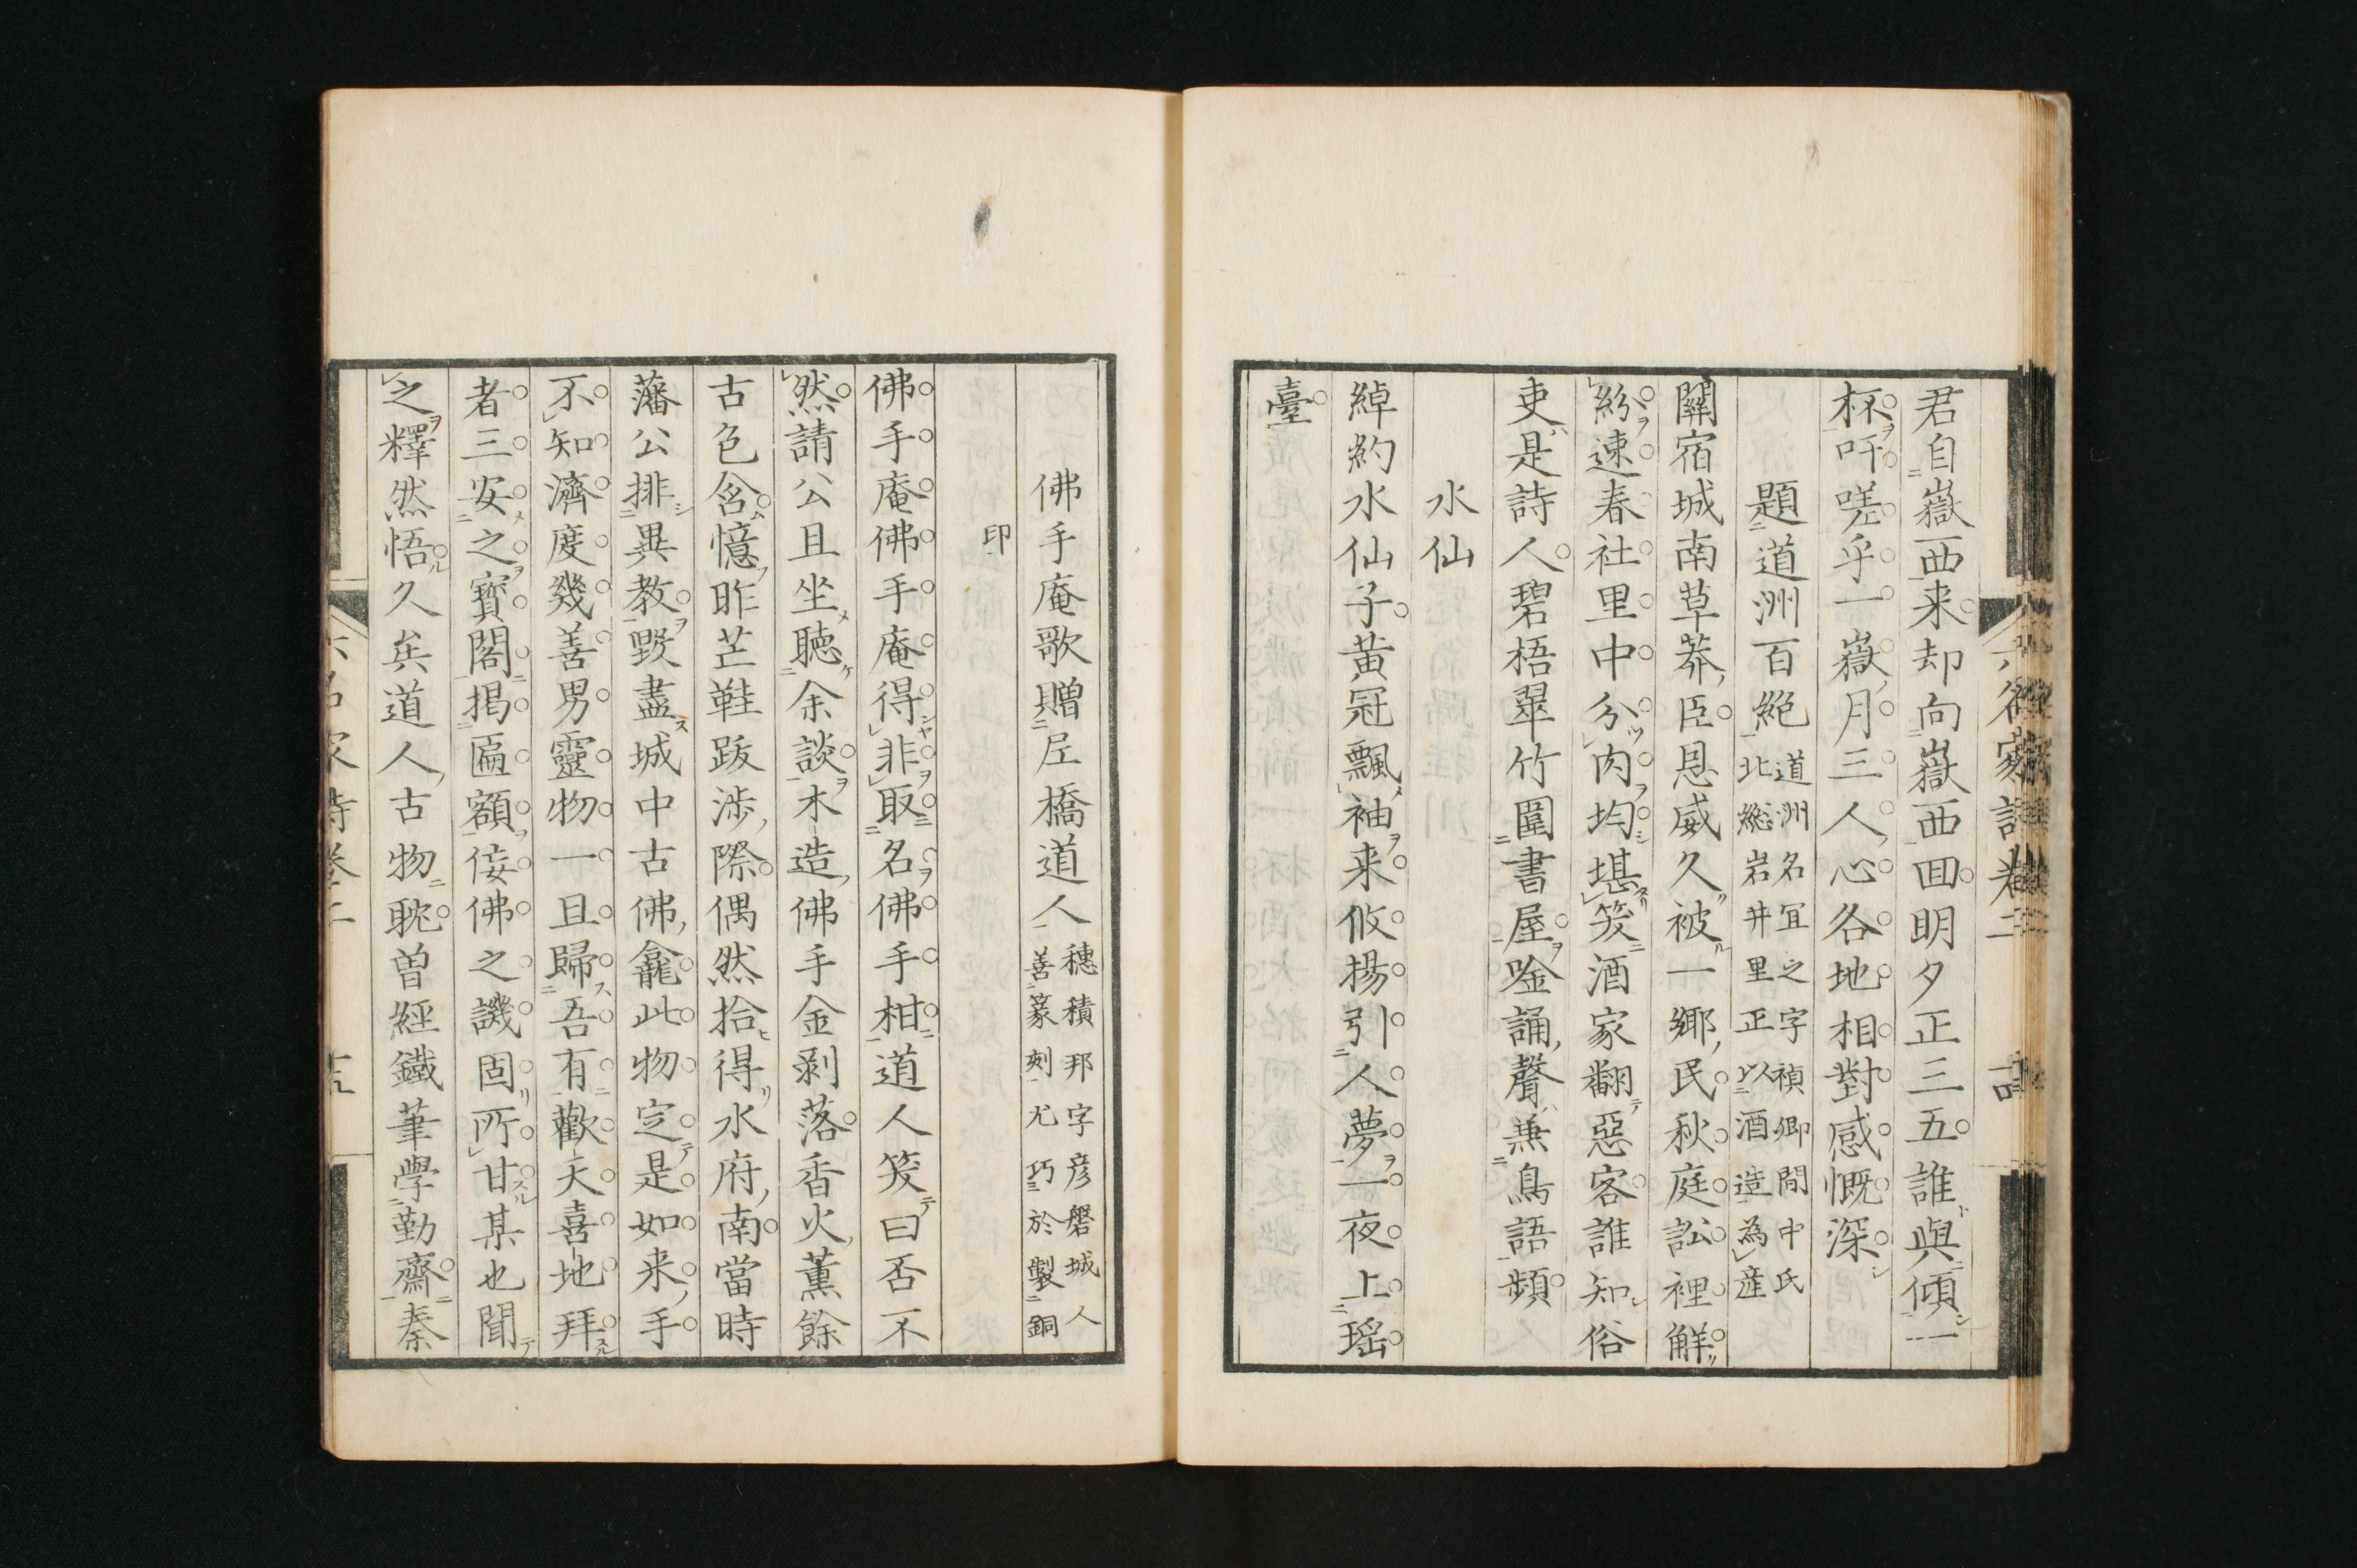 君自嶽西来却向嶽西回明夕正三五誰與傾一
杯吁嗟乎一嶽月三人心各地相對感慨深
題道洲百絕 道洲名宜之字禎卿間中氏
北総岩井里正以酒造為産
闢宿城南草莽臣恩威久被一鄉民秋庭訟裡解
紛速春社里中分肉均堪笑酒家翻惡客誰知俗
吏是詩人碧梧翠竹圍書屋唫誦聲兼鳥語頻
水仙
綽約水仙子黃冠飄袖来攸揚引人夢一夜上瑤
臺
佛手庵歌贈㞐橋道人 穗積邦字彦磐城人
善篆刻尤巧於製銅
印
佛手庵佛手庵得非取名佛手柑道人笑曰否不
然請公且坐聽余談木造佛手金剥落香火薰餘
古色含憶昨芒鞋跋涉際偶然拾得水府南當時
藩公排異教毀盡城中古佛龕此物定是如来手
不知濟度幾善男靈物一旦歸吾有歡天喜地拜
者三安之寶閣揭匾額侫佛之譏固所甘某也聞
之釋然悟久矣道人古物耽曽經鐵筆學勤齋秦